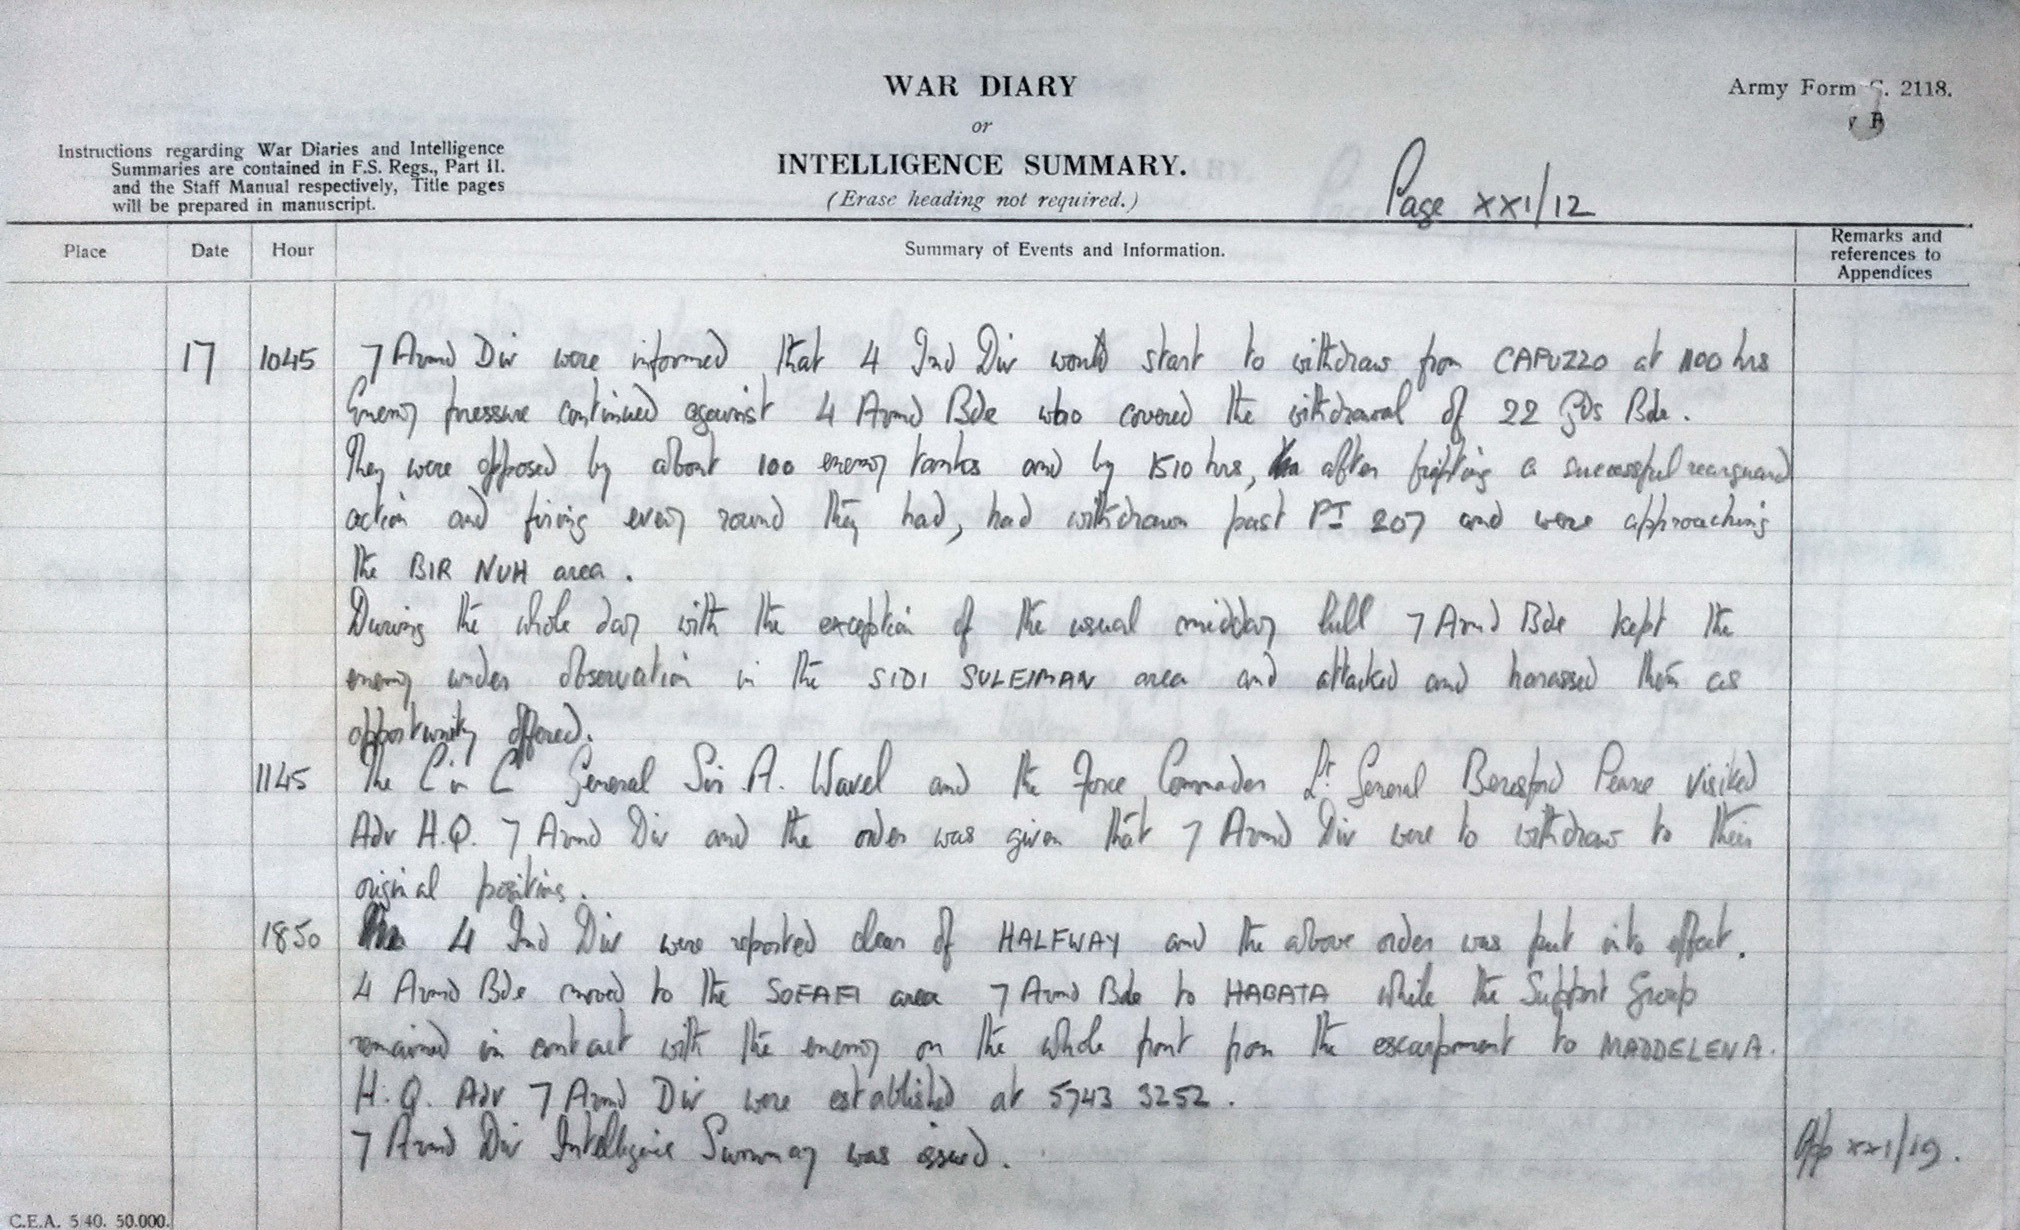 WAR DIARY
Army Form C. 2118.
or
Instructions regarding War Diaries and Intelligence
Summaries are contained in F.S. Regs., Part II.
and the Staff Manual respectively, Title pages
will be prepared in manuscript.
INTELLIGENCE SUMMARY.
(Erase heading not required.)
Page XXI/12
Place Date Hour Summary of Events and Information. Remarks and references to Appendices
17 1045 7 Armd Div were informed that 4 Ind Div would start to withdraw from CAPUZZO at 1100 hrs
Enemy pressure continued against 4 Armd Bde who covered the withdrawal of 22 Gds Bde.
They were opposed by about 100 enemy tanks and by 1510 hrs, after fighting a successful rearguard
action and firing every round they had, had withdrawn past PT 207 and were approaching
the BIR NUH area.
During the whole day with the exception of the usual midday lull 7 Armd Bde kept the
enemy under observation in the SIDI SULEIMAN area and attacked and harassed them as
opportunity offered.
1145 The C in C General Sir A. Wavel and the Force Commander Lt. General Beresford Pearse visited
Adv H.Q. 7 Armd Div and the order was given that 7 Armd Div were to withdraw to their
original positions.
1850 4 Ind Div were reported clear of HALFWAY and the above order was put into effect.
4 Armd Bde moved to the SOFAFI area 7 Armd Bde to HABATA while the Support Group
remained in contact with the enemy on the whole front from the escarpment to MADDELENA.
H.Q. Adv 7 Armd Div were established at 5743 3252.
7 Armd Div Intelligence Summary was issued. App XXI/19.
C.E.A. 5/40. 50.000.